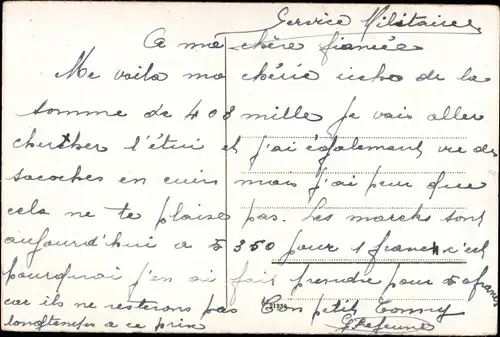 Service Militaire
A ma chère fiancée
Me voila ma chérie riche de la
somme de 408 mille je vais aller
chercher l'étui et j'ai également vu des
sacoches en cuir mais j'ai peur que
cela ne te plaise pas. Les marcks sont
aujourd'hui a 5350 pour 1 franc c'est
pourquoi j'en ai fait prendre pour 5 francs
car ils ne resterons pas Ton petit Tonny
longtemps a ce prix G Lejeune